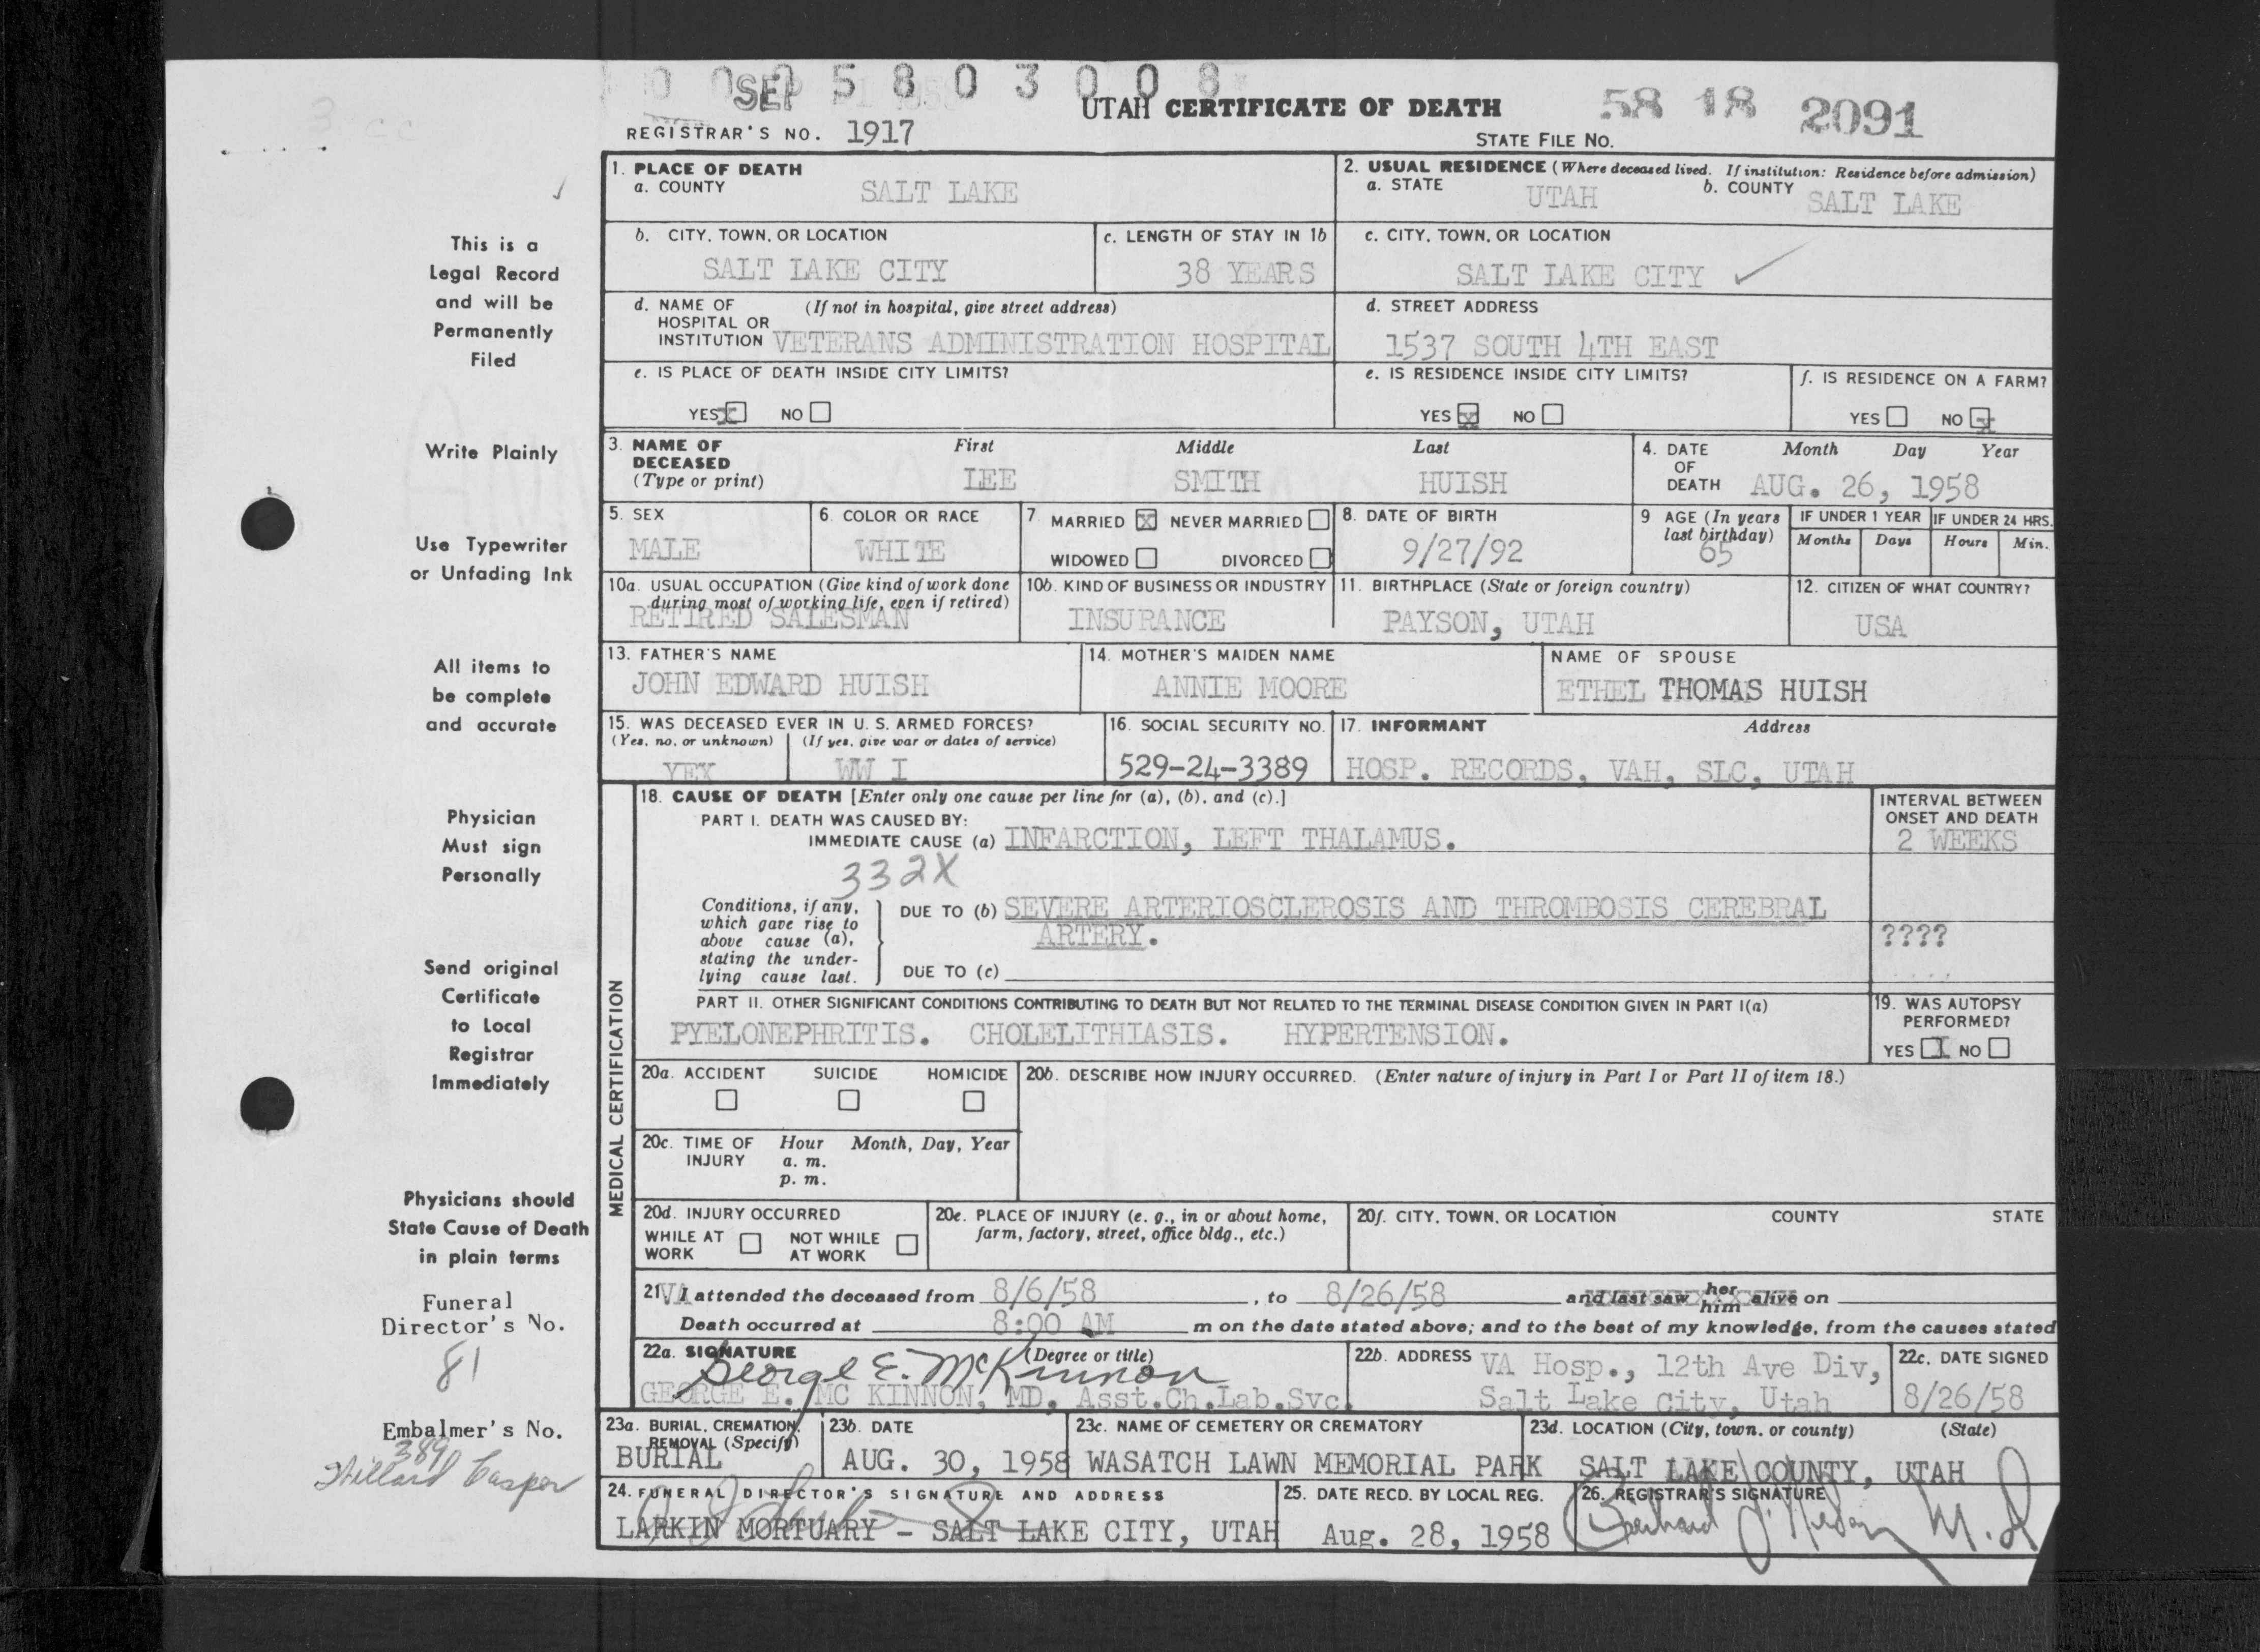 0 0 0 5 8 0 3 0 0 8
SEP
UTAH CERTIFICATE OF DEATH
58 18 2091
REGISTRAR'S NO. 1917
STATE FILE NO.
1. PLACE OF DEATH
a. COUNTY SALT LAKE
2. USUAL RESIDENCE (Where deceased lived. If institution: Residence before admission)
a. STATE UTAH b. COUNTY SALT LAKE
b. CITY, TOWN, OR LOCATION
SALT LAKE CITY
c. LENGTH OF STAY IN 1b
38 YEARS
c. CITY, TOWN, OR LOCATION
SALT LAKE CITY ✓
d. NAME OF HOSPITAL OR INSTITUTION (If not in hospital, give street address)
VETERANS ADMINISTRATION HOSPITAL
d. STREET ADDRESS
1537 SOUTH 4TH EAST
e. IS PLACE OF DEATH INSIDE CITY LIMITS?
YES X NO
e. IS RESIDENCE INSIDE CITY LIMITS?
YES X NO
f. IS RESIDENCE ON A FARM?
YES NO X
3. NAME OF DECEASED (Type or print)
First Middle Last
LEE SMITH HUISH
4. DATE OF DEATH Month Day Year
AUG. 26, 1958
5. SEX
MALE
6. COLOR OR RACE
WHITE
7. MARRIED X NEVER MARRIED
WIDOWED DIVORCED
8. DATE OF BIRTH
9/27/92
9 AGE (In years last birthday)
65
IF UNDER 1 YEAR
Months Days
IF UNDER 24 HRS.
Hours Min.
10a. USUAL OCCUPATION (Give kind of work done during most of working life, even if retired)
RETIRED SALESMAN
10b. KIND OF BUSINESS OR INDUSTRY
INSURANCE
11. BIRTHPLACE (State or foreign country)
PAYSON, UTAH
12. CITIZEN OF WHAT COUNTRY?
USA
13. FATHER'S NAME
JOHN EDWARD HUISH
14. MOTHER'S MAIDEN NAME
ANNIE MOORE
NAME OF SPOUSE
ETHEL THOMAS HUISH
15. WAS DECEASED EVER IN U. S. ARMED FORCES?
(Yes, no, or unknown) (If yes, give war or dates of service)
YEX WW I
16. SOCIAL SECURITY NO.
529-24-3389
17. INFORMANT Address
HOSP. RECORDS, VAH, SLC, UTAH
MEDICAL CERTIFICATION
18. CAUSE OF DEATH [Enter only one cause per line for (a), (b), and (c).]
PART I. DEATH WAS CAUSED BY:
IMMEDIATE CAUSE (a) INFARCTION, LEFT THALAMUS.
INTERVAL BETWEEN ONSET AND DEATH
2 WEEKS
332X
Conditions, if any, which gave rise to above cause (a), stating the underlying cause last.
DUE TO (b) SEVERE ARTERIOSCLEROSIS AND THROMBOSIS CEREBRAL
ARTERY.
????
DUE TO (c)
PART II. OTHER SIGNIFICANT CONDITIONS CONTRIBUTING TO DEATH BUT NOT RELATED TO THE TERMINAL DISEASE CONDITION GIVEN IN PART I(a)
PYELONEPHRITIS. CHOLELITHIASIS. HYPERTENSION.
19. WAS AUTOPSY PERFORMED?
YES X NO
20a. ACCIDENT SUICIDE HOMICIDE
20b. DESCRIBE HOW INJURY OCCURRED. (Enter nature of injury in Part I or Part II of item 18.)
20c. TIME OF INJURY Hour Month, Day, Year
a. m.
p. m.
20d. INJURY OCCURRED
WHILE AT WORK NOT WHILE AT WORK
20e. PLACE OF INJURY (e. g., in or about home, farm, factory, street, office bldg., etc.)
20f. CITY, TOWN, OR LOCATION COUNTY STATE
21 VA I attended the deceased from 8/6/58, to 8/26/58 and last saw her him alive on
Death occurred at 8:00 AM m on the date stated above; and to the best of my knowledge, from the causes stated
22a. SIGNATURE (Degree or title)
George E. McKinnon
GEORGE E. MC KINNON, MD, Asst.Ch.Lab.Svc.
22b. ADDRESS VA Hosp., 12th Ave Div,
Salt Lake City, Utah
22c. DATE SIGNED
8/26/58
23a. BURIAL, CREMATION, REMOVAL (Specify)
BURIAL
23b. DATE
AUG. 30, 1958
23c. NAME OF CEMETERY OR CREMATORY
WASATCH LAWN MEMORIAL PARK
23d. LOCATION (City, town, or county) (State)
SALT LAKE COUNTY, UTAH
24. FUNERAL DIRECTOR'S SIGNATURE AND ADDRESS
LARKIN MORTUARY - SALT LAKE CITY, UTAH
25. DATE RECD. BY LOCAL REG.
Aug. 28, 1958
26. REGISTRAR'S SIGNATURE
M.D.
3 cc
This is a
Legal Record
and will be
Permanently
Filed
Write Plainly
Use Typewriter
or Unfading Ink
All items to
be complete
and accurate
Physician
Must sign
Personally
Send original
Certificate
to Local
Registrar
Immediately
Physicians should
State Cause of Death
in plain terms
Funeral
Director's No.
81
Embalmer's No.
389
Willard Casper